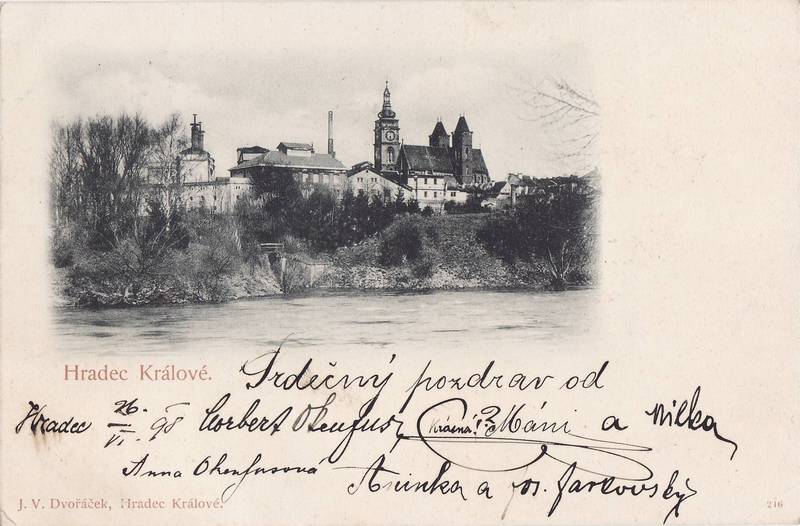 Hradec Králové.
Srdečný pozdrav od
Hradec 26. VI. 98 Norbert Okenfus, krásná!? Máni a Milka
Anna Okenfusová
Aninka a Jos. Jarkovský
J. V. Dvořáček, Hradec Králové.
216